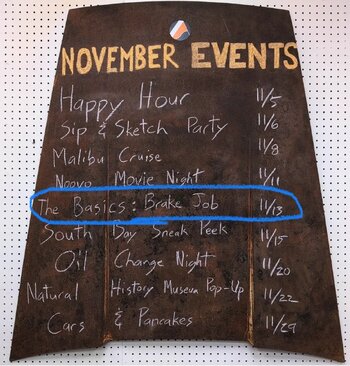 NOVEMBER EVENTS
Happy Hour 11/5
Sip & Sketch Party 11/6
Malibu Cruise 11/8
Noovo Movie Night 11/11
The Basics: Brake Job 11/13
South Day Sneak Peek 11/15
Oil Change Night 11/20
Natural History Museum Pop-Up 11/22
Cars & Pancakes 11/29